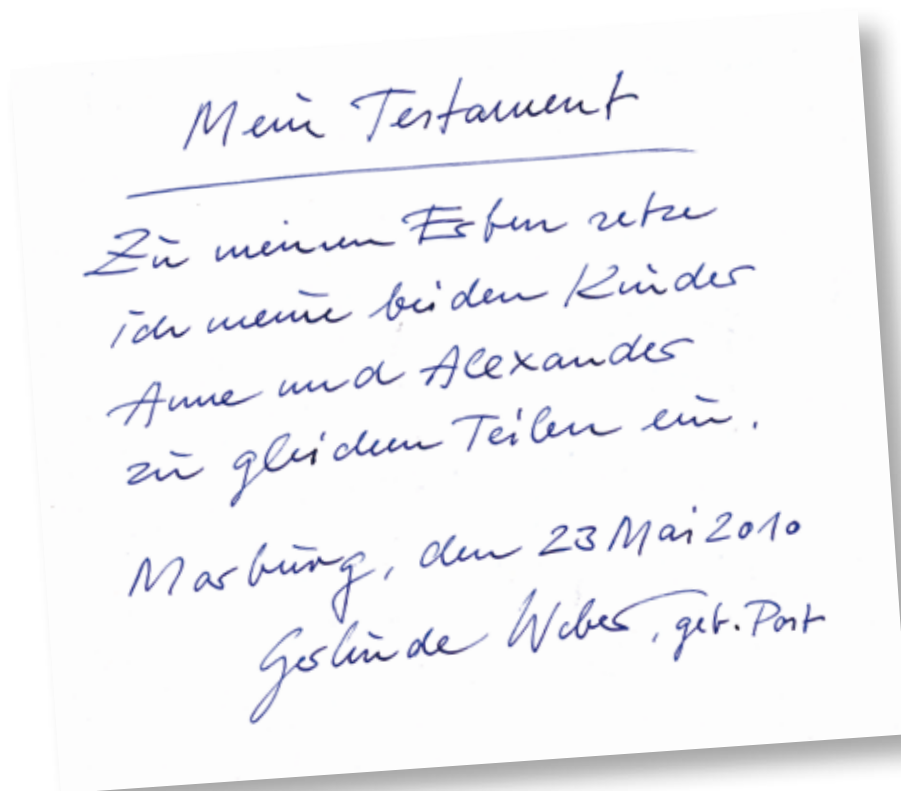 Mein Testament
Zu meinen Erben setze
ich meine beiden Kinder
Anne und Alexander
zu gleichen Teilen ein.
Marburg, den 23 Mai 2010
Gerlinde Weber, geb. Post